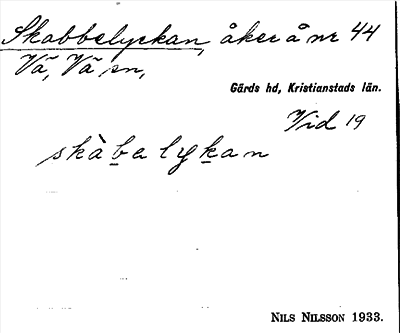 Skabbelyckan, åker å nr 44
Vä, Vä sn,
Gärds hd, Kristianstads län.
Vid 19
skàbelykan
NILS NILSSON 1933.